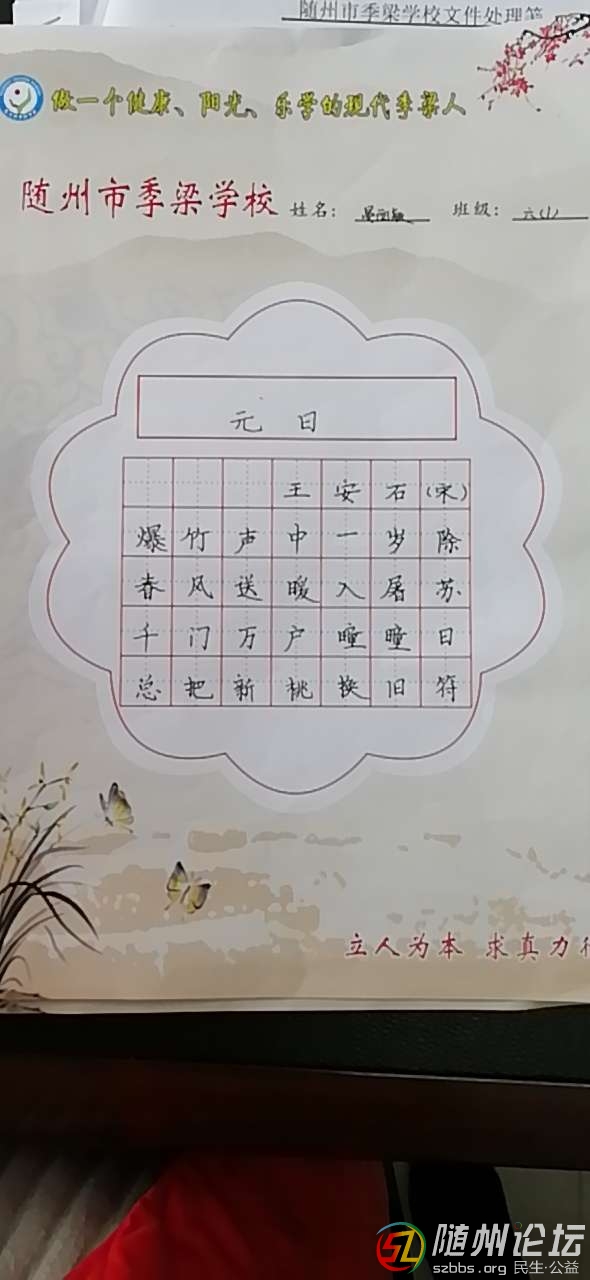 随州市季梁学校文件处理笺
做一个健康、阳光、乐学的现代季梁人
随州市季梁学校 姓名： 班级：六(1)
元日
王安石(宋)
爆竹声中一岁除
春风送暖入屠苏
千门万户曈曈日
总把新桃换旧符
立人为本 求真力行
随州论坛
szbbs.org 民生·公益